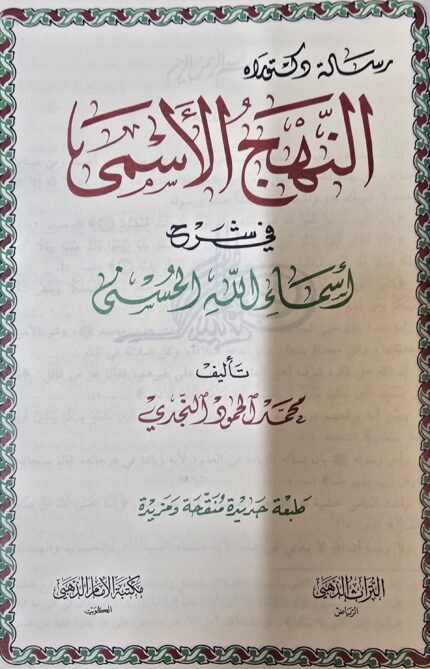 رسالة دكتوراه
النَّهْجُ الأَسْمَى
في شرح
أسماءِ اللهِ الحُسْنى
تأليف
محمد الحمود النجدي
طبعة جديدة منقحة ومزيدة
التراث الذهبي
الرياض
مكتبة الإمام الذهبي
الكويت